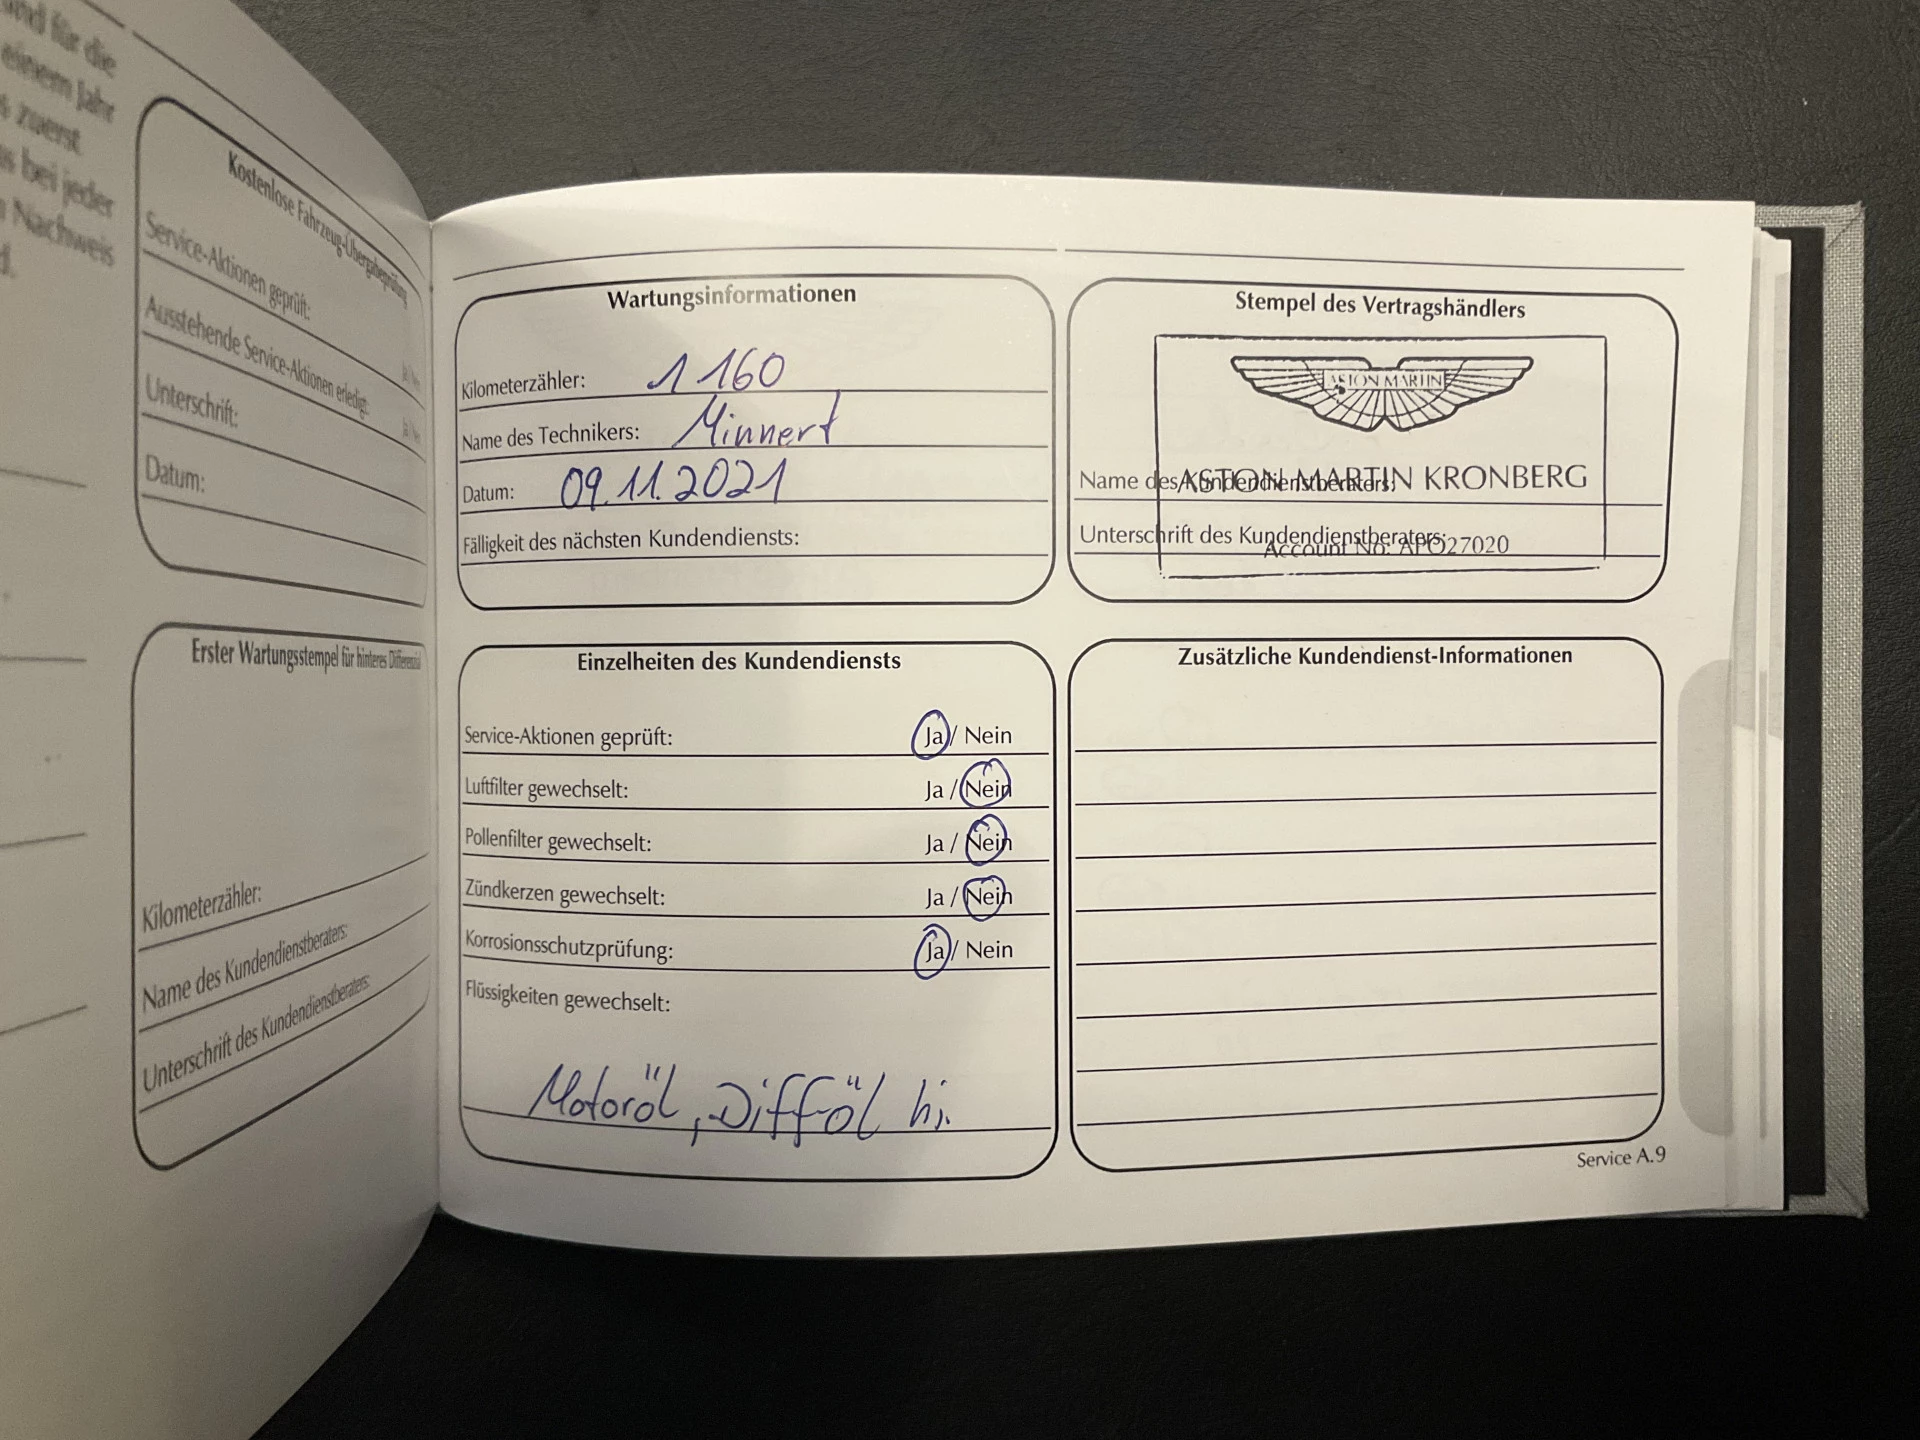 und für die
einem Jahr
zuerst
bei jeder
Nachweis
Kostenlose Fahrzeug-Übergabeprüfung
Service-Aktionen geprüft:
Ja / Nein
Ausstehende Service-Aktionen erledigt:
Ja / Nein
Unterschrift:
Datum:
Erster Wartungsstempel für hinteres Differenzial
Kilometerzähler:
Name des Kundendienstberaters:
Unterschrift des Kundendienstberaters:
Wartungsinformationen
Kilometerzähler: 1 160
Name des Technikers: Minnert
Datum: 09.11.2021
Fälligkeit des nächsten Kundendiensts:
Stempel des Vertragshändlers
ASTON MARTIN
Name des Kundendienstberaters:
ASTON MARTIN KRONBERG
Unterschrift des Kundendienstberaters:
Account No: APO27020
Einzelheiten des Kundendiensts
Service-Aktionen geprüft: Ja / Nein
Luftfilter gewechselt: Ja / Nein
Pollenfilter gewechselt: Ja / Nein
Zündkerzen gewechselt: Ja / Nein
Korrosionsschutzprüfung: Ja / Nein
Flüssigkeiten gewechselt:
Motoröl, Diff-öl hi.
Zusätzliche Kundendienst-Informationen
Service A.9